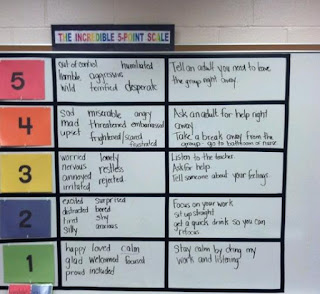 THE INCREDIBLE 5-POINT SCALE
5
out of control humiliated
horrible aggressive
wild terrified desperate
Tell an adult you need to leave
the group right away.
4
sad miserable angry
mad threatened embarrassed
upset frightened/scared
frustrated
Ask an adult for help right
away.
Take a break away from the
group - go to bathroom or nurse.
3
worried lonely
nervous restless
annoyed rejected
irritated
Listen to the teacher.
Ask for help.
Tell someone about your feelings.
2
excited surprised
distracted bored
tired shy
silly anxious
Focus on your work
sit up straight
get a quick drink so you can
refocus
1
happy loved calm
glad welcomed focused
proud included
Stay calm by doing my
work and listening